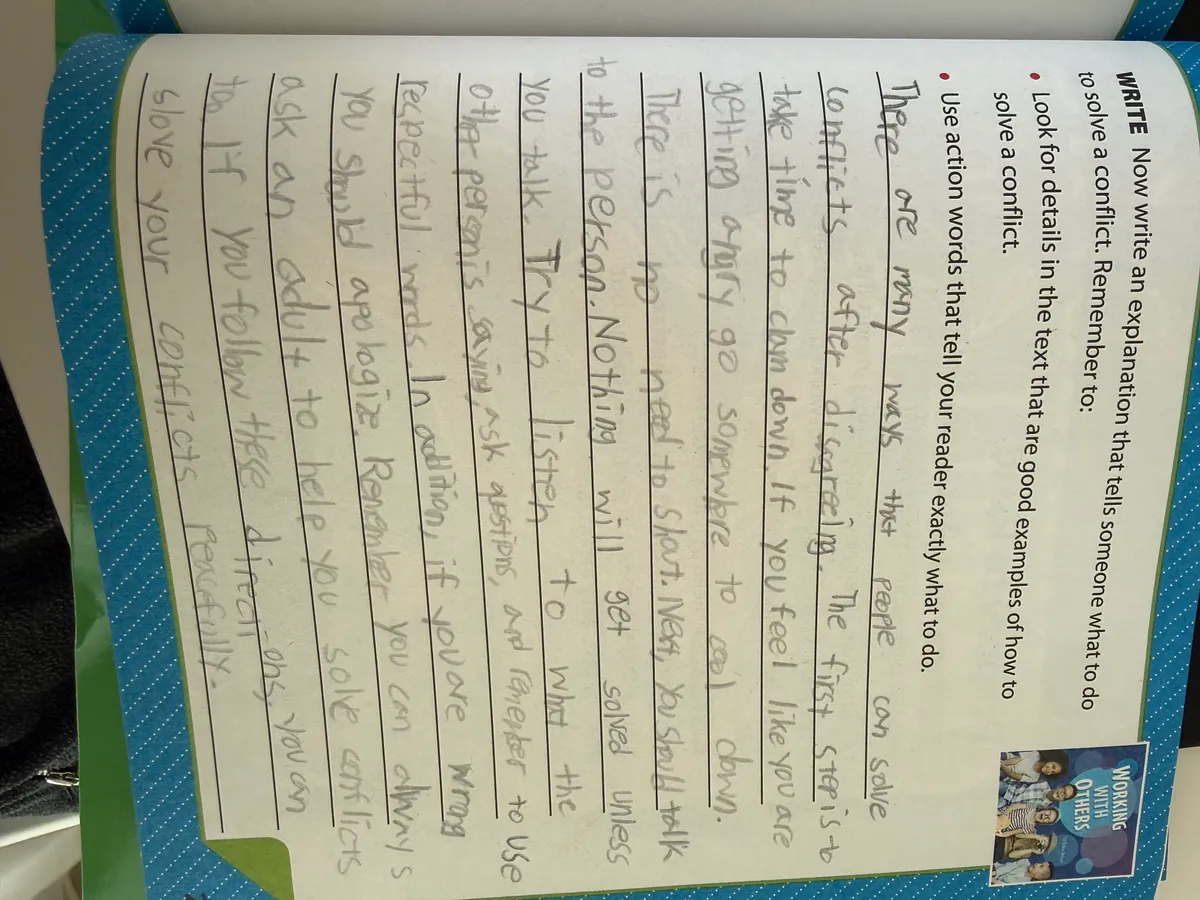 WRITE Now write an explanation that tells someone what to do
to solve a conflict. Remember to:
• Look for details in the text that are good examples of how to
solve a conflict.
• Use action words that tell your reader exactly what to do.
WORKING
WITH
OTHERS
There are many ways that people can solve
conflicts after disagreeing. The first step is to
take time to clam down. If you feel like you are
getting angry go somewhere to cool down.
There is no need to shout. Next, you should talk
to the person. Nothing will get solved unless
you talk. Try to listen to what the
other person is saying, ask qestions, and remember to use
recpectful words. In addition, if you are wrong
you should apologize. Remember you can always
ask an adult to help you solve conflicts
too If you follow these directi-ons, you can
slove your conflicts peacefully.